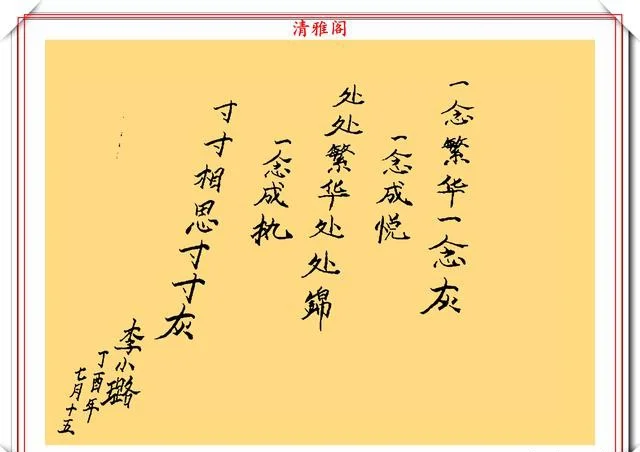 清雅阁
一念繁华一念灰
一念成悦
处处繁华处处錦
一念成执
寸寸相思寸寸灰
李小璐
丁酉年
七月十五